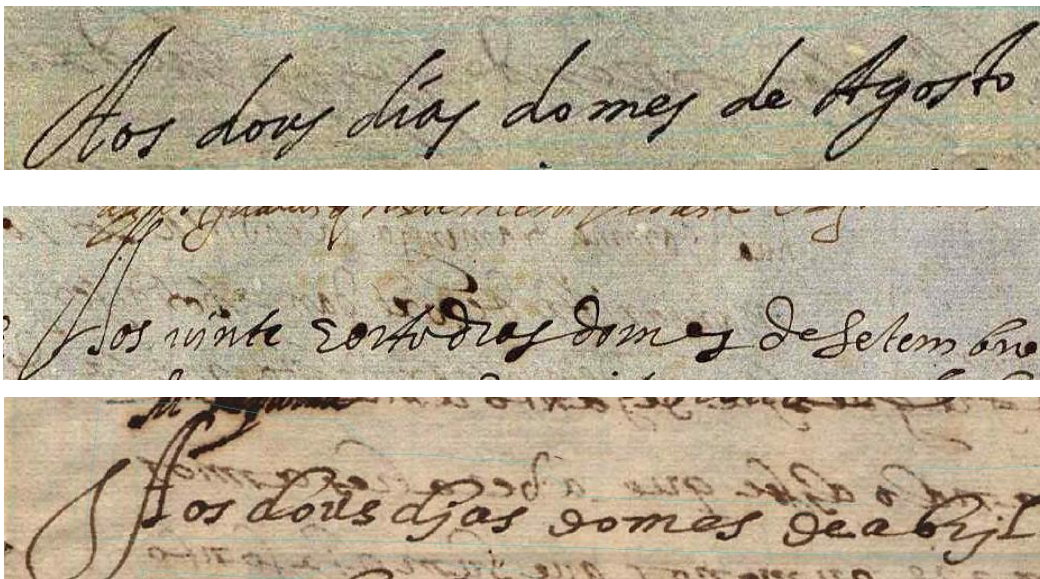 Aos dous dias do mes de Agosto
Aos vinte e oito dias do mes de Setembro
Aos dous djas do mes de abrjl